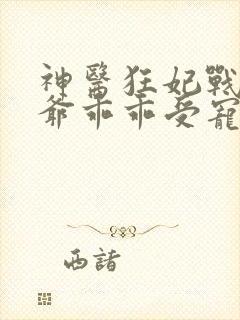 神醫狂妃戰
爺乖乖受寵
西諸